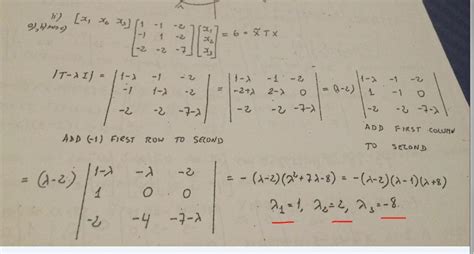 b) [x₁ x₂ x₃] [1 -1 -2; -1 1 -2; -2 -2 -7] [x₁; x₂; x₃] = 6 = x̃ T x
|T-λI| = |1-λ -1 -2; -1 1-λ -2; -2 -2 -7-λ| = |1-λ -1 -2; -2+λ 2-λ 0; -2 -2 -7-λ| = (λ-2) |1-λ -1 -2; 1 -1 0; -2 -2 -7-λ|
ADD (-1) FIRST ROW TO SECOND
ADD FIRST COLUMN
TO SECOND
= (λ-2) |1-λ -λ -2; 1 0 0; -2 -4 -7-λ| = -(λ-2)(λ²+7λ-8) = -(λ-2)(λ-1)(λ+8)
λ₁=1, λ₂=2, λ₃=-8